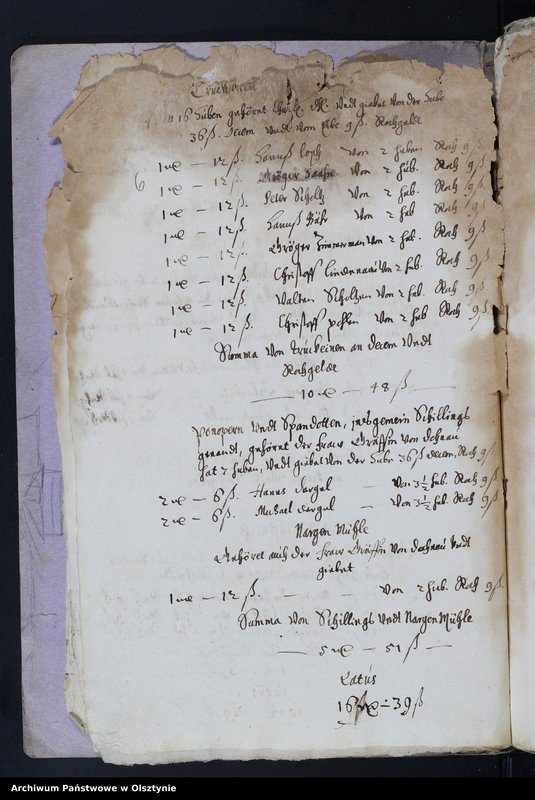 16 Huben gehöret undt giebet von der Hube
36 ß. decem undt vom 9 ß. Rochgeldt
1 mꝶ — 12 ß. Hannß von 2 huben Roch 9 ß.
6 1 mꝶ — 12 ß. Gröger von 2 hub. Roch 9 ß.
1 mꝶ — 12 ß. Peter Scholtz von 2 hub. Roch 9 ß.
1 mꝶ — 12 ß. Hannß Bähr von 2 hub Roch 9 ß.
1 mꝶ — 12 ß. Gröger Zimmerman von 2 hub. Roch 9 ß.
1 mꝶ — 12 ß. Christoff Lindenau von 2 hub. Roch 9 ß
1 mꝶ — 12 ß. Valten Scholtz von 2 hub. Roch 9 ß.
1 mꝶ — 12 ß. Christoff von 2 hub Roch 9 ß.
Summa von Truckeinen an decem Undt
Rochgelde
— 10 mꝶ — 48 ß —
Ponopern Undt Spandotten, insgemein Schillings
genandt, gehöret der fraw Gräffin von dohnau
hat 7 huben, Undt giebet von der Hube 36 ß decem, Roch 9 ß
2 mꝶ — 6 ß. Hanns dargel — von 3½ hub. Roch 9 ß
2 mꝶ — 6 ß. Michael dargel — von 3½ hub. Roch 9 ß.
Nargen Mühle
Gehöret auch der fraw Gräffin von dohnau Undt
giebet
1 mꝶ — 12 ß. — — von 2 hub. Roch 9 ß.
Summa von Schillings Undt Nargen Mühle
— 5 mꝶ — 51 ß —
Latus
16 mꝶ — 39 ß
Archiwum Państwowe w Olsztynie